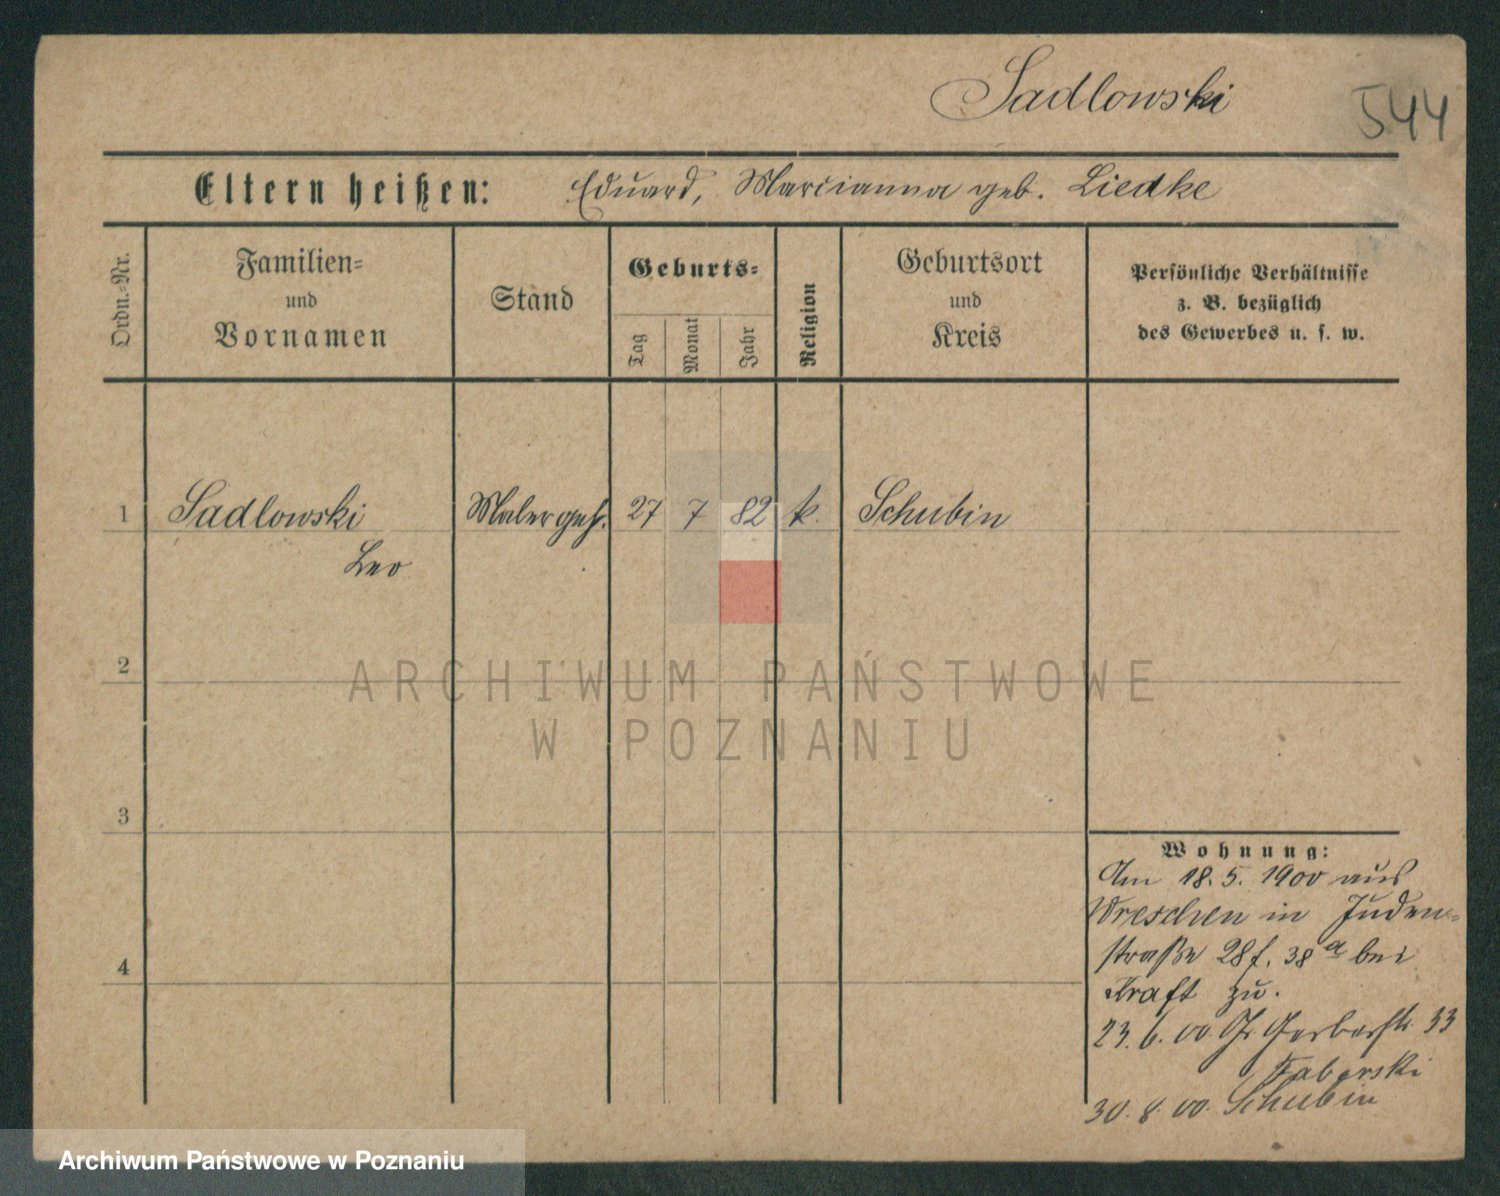 Sadlowski
544
Eltern heißen: Eduard, Marcianna geb. Liedke
Ordn.-Nr.
Familien-
und
Vornamen
Stand
Geburts-
Tag
Monat
Jahr
Religion
Geburtsort
und
Kreis
Persönliche Verhältnisse
z. B. bezüglich
des Gewerbes u. s. w.
1 Sadlowski Malergeh. 27 7 82 k. Schubin
Leo
2
3
4
ARCHIWUM PAŃSTWOWE
W POZNANIU
Wohnung:
Am 18.5. 1900 aus
Wreschen in Juden-
straße 28 38a bei
Kraft zu.
23.6.00. Gr Gerberstr. 33
Faberski
30.8.00. Schubin
Archiwum Państwowe w Poznaniu